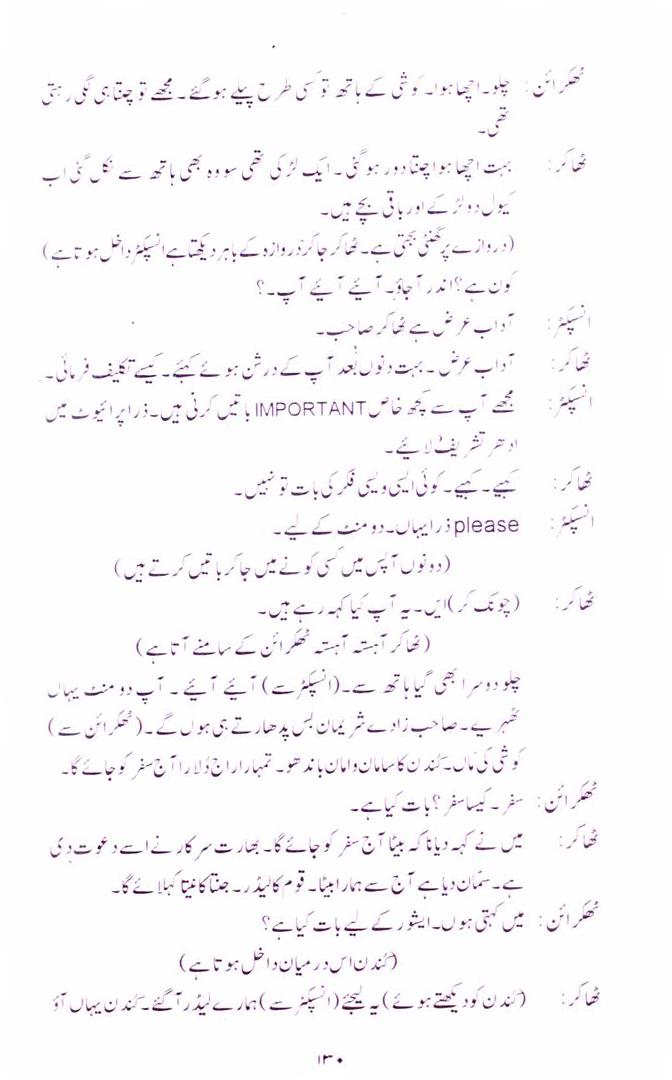 ٹھکرائن: چلو۔ اچھا ہوا۔ کوشی کے ہاتھ تو کسی طرح پیلے ہوگئے۔ مجھے تو چنتا ہی لگی رہتی
تھی۔
ٹھاکر: بہت اچھا ہوا چنتا دور ہوگئی۔ ایک لڑکی تھی سو وہ بھی ہاتھ سے نکل گئی اب
کیول دو لڑکے اور باقی بچے ہیں۔
(دروازے پر گھنٹی بجتی ہے۔ ٹھاکر جاکر دروازہ کے باہر دیکھتا ہے انسپکٹر داخل ہوتا ہے)
کون ہے؟ اندر آجاؤ۔ آئیے آئیے آپ۔؟
انسپکٹر: آداب عرض ہے ٹھاکر صاحب۔
ٹھاکر: آداب عرض۔ بہت دنوں بعد آپ کے درشن ہوئے کہئے۔ کیسے تکلیف فرمائی۔
انسپکٹر: مجھے آپ سے کچھ خاص IMPORTANT باتیں کرنی ہیں۔ ذرا پرائیوٹ میں
ادھر تشریف لائیے۔
ٹھاکر: کہیے۔ کہیے۔ کوئی ایسی ویسی فکر کی بات تو نہیں۔
انسپکٹر: please ذرا یہاں۔ دو منٹ کے لیے۔
(دونوں آپس میں کسی کونے میں جاکر باتیں کرتے ہیں)
ٹھاکر: (چونک کر) ایں۔ یہ آپ کیا کہہ رہے ہیں۔
(ٹھاکر آہستہ آہستہ ٹھکرائن کے سامنے آتا ہے)
چلو دوسرا بھی گیا ہاتھ سے۔ (انسپکٹر سے) آئیے آئیے۔ آپ دو منٹ یہاں
ٹھہریے۔ صاحب زادے شریمان بس پدھارتے ہی ہوں گے۔ (ٹھکرائن سے)
کوشی کی ماں۔ کندن کا سامان وامان باندھو۔ تمہارا راج دُلارا آج سفر کو جائے گا۔
ٹھکرائن: سفر۔ کیسا سفر؟ بات کیا ہے۔
ٹھاکر: میں نے کہہ دیا نا کہ بیٹا آج سفر کو جائے گا۔ بھارت سرکار نے اسے دعوت دی
ہے۔ سمّان دیا ہے آج سے ہمارا بیٹا۔ قوم کا لیڈر۔ جنتا کا نیتا کہلائے گا۔
ٹھکرائن: میں کہتی ہوں۔ ایشور کے لیے بات کیا ہے؟
(کندن اس درمیان داخل ہوتا ہے)
ٹھاکر: (کندن کو دیکھتے ہوئے) یہ لیجئے (انسپکٹر سے) ہمارے لیڈر آگئے۔ کندن یہاں آؤ
۱۳۰